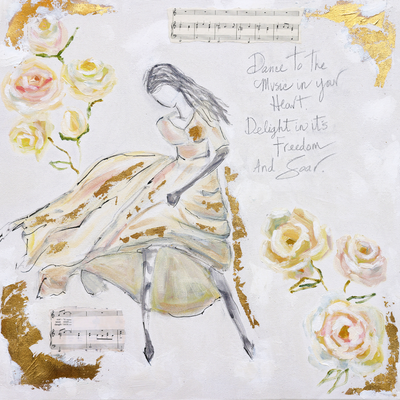 Dance to the
Music in your
Heart
Delight in it's
Freedom
And Soar.